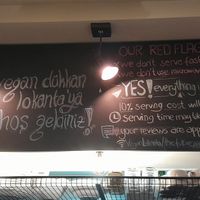 vegan dükkan
lokanta'ya
hoş geldiniz!
OUR RED FLAG
we don't serve fast
we don't use microwa
YES! everything i
10% serving cost will
serving time may b
your reviews are app